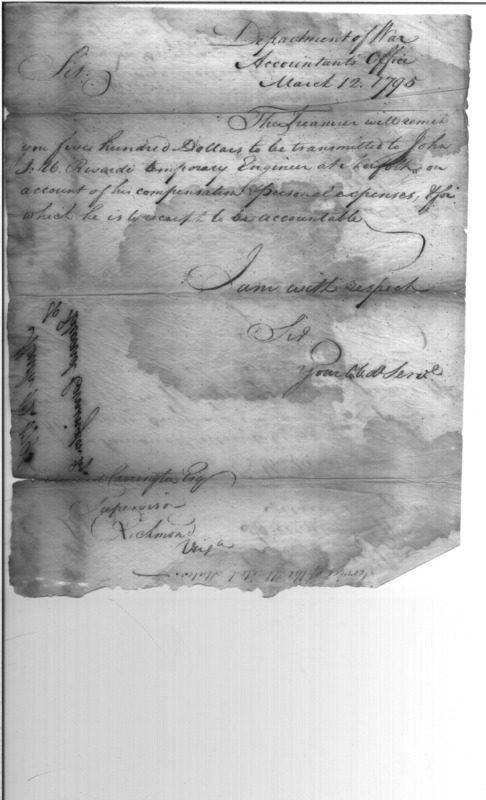 Department of War
Accountants Office
March 12. 1795
Sir.
The Treasurer will remit
you five hundred Dollars to be transmitted to John
J. U. Rivardi temporary Engineer at Norfolk, on
account of his compensation & personal expenses, & for
which he is to receipt & to be accountable
I am with respect
Sir
Your Ob. Serv.
Carrington Esq
Supervisor
Richmond
Virg.a
of the United States